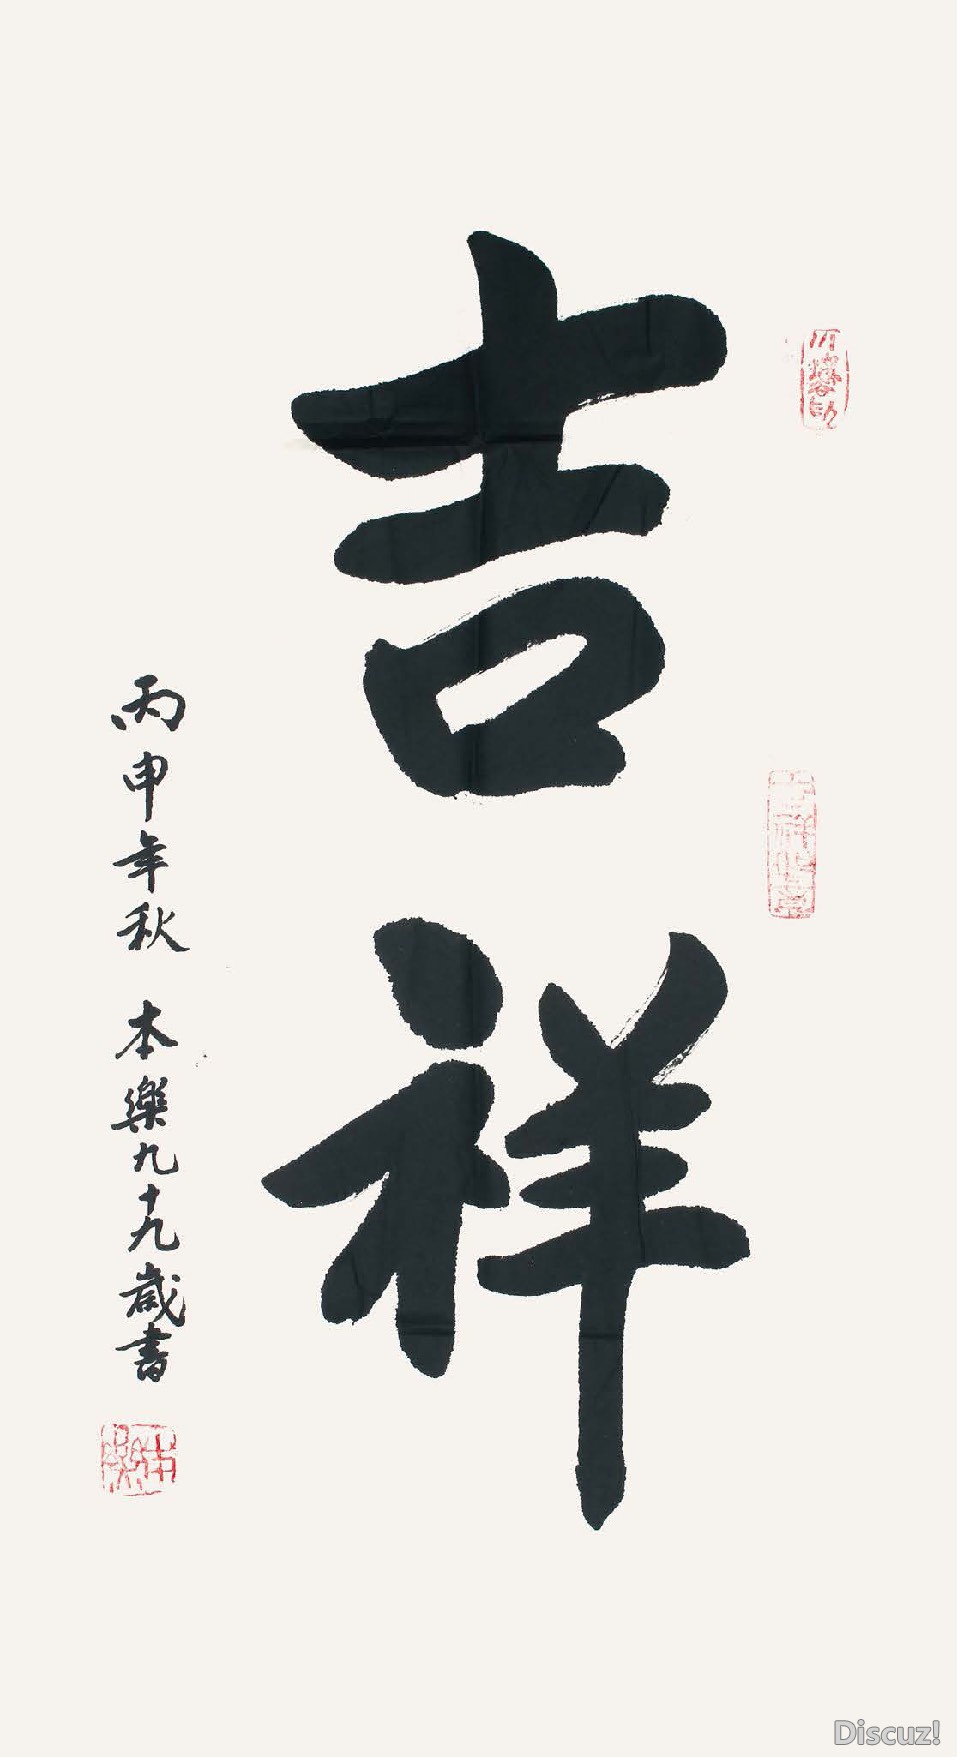 吉祥
丙申年秋 本樂九十九歲書
Discuz!